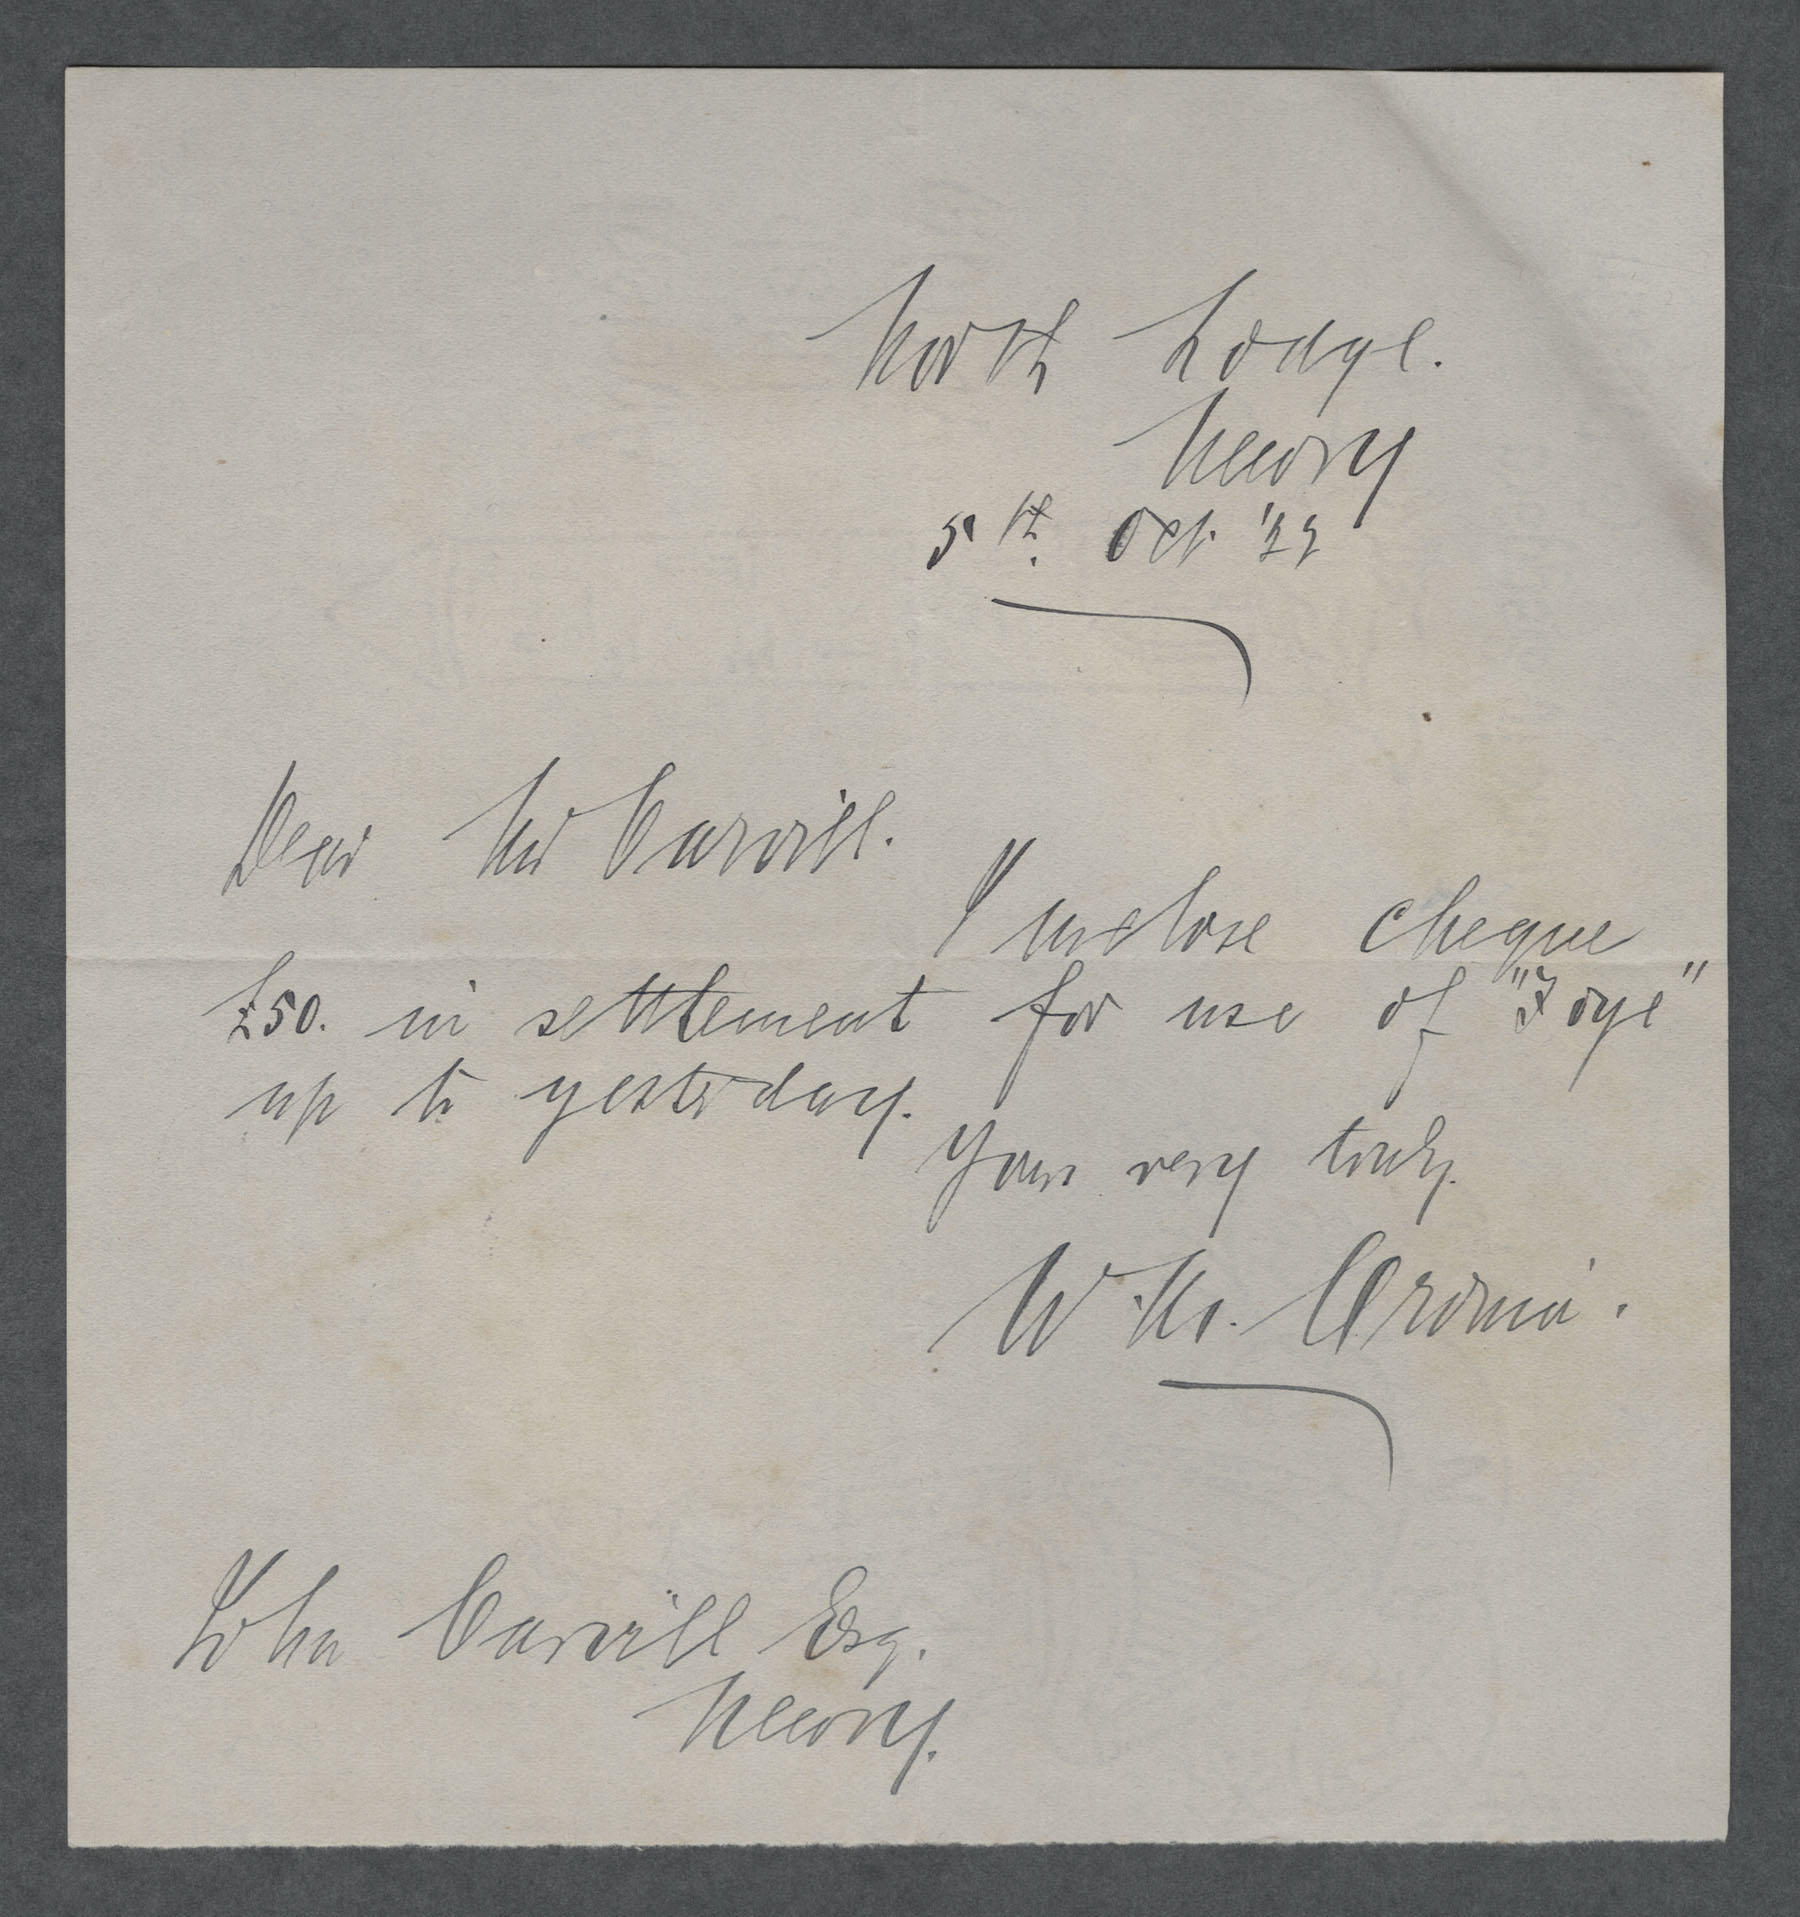 North Lodge.
Newry
5th. Oct. '22
Dear Mr Carvill.
I inclose cheque
£50. in settlement for use of "Foye"
up to yesterday.
Yours very truly.
W. Mc. Cronin.
John Carvill Esq.
Newry.